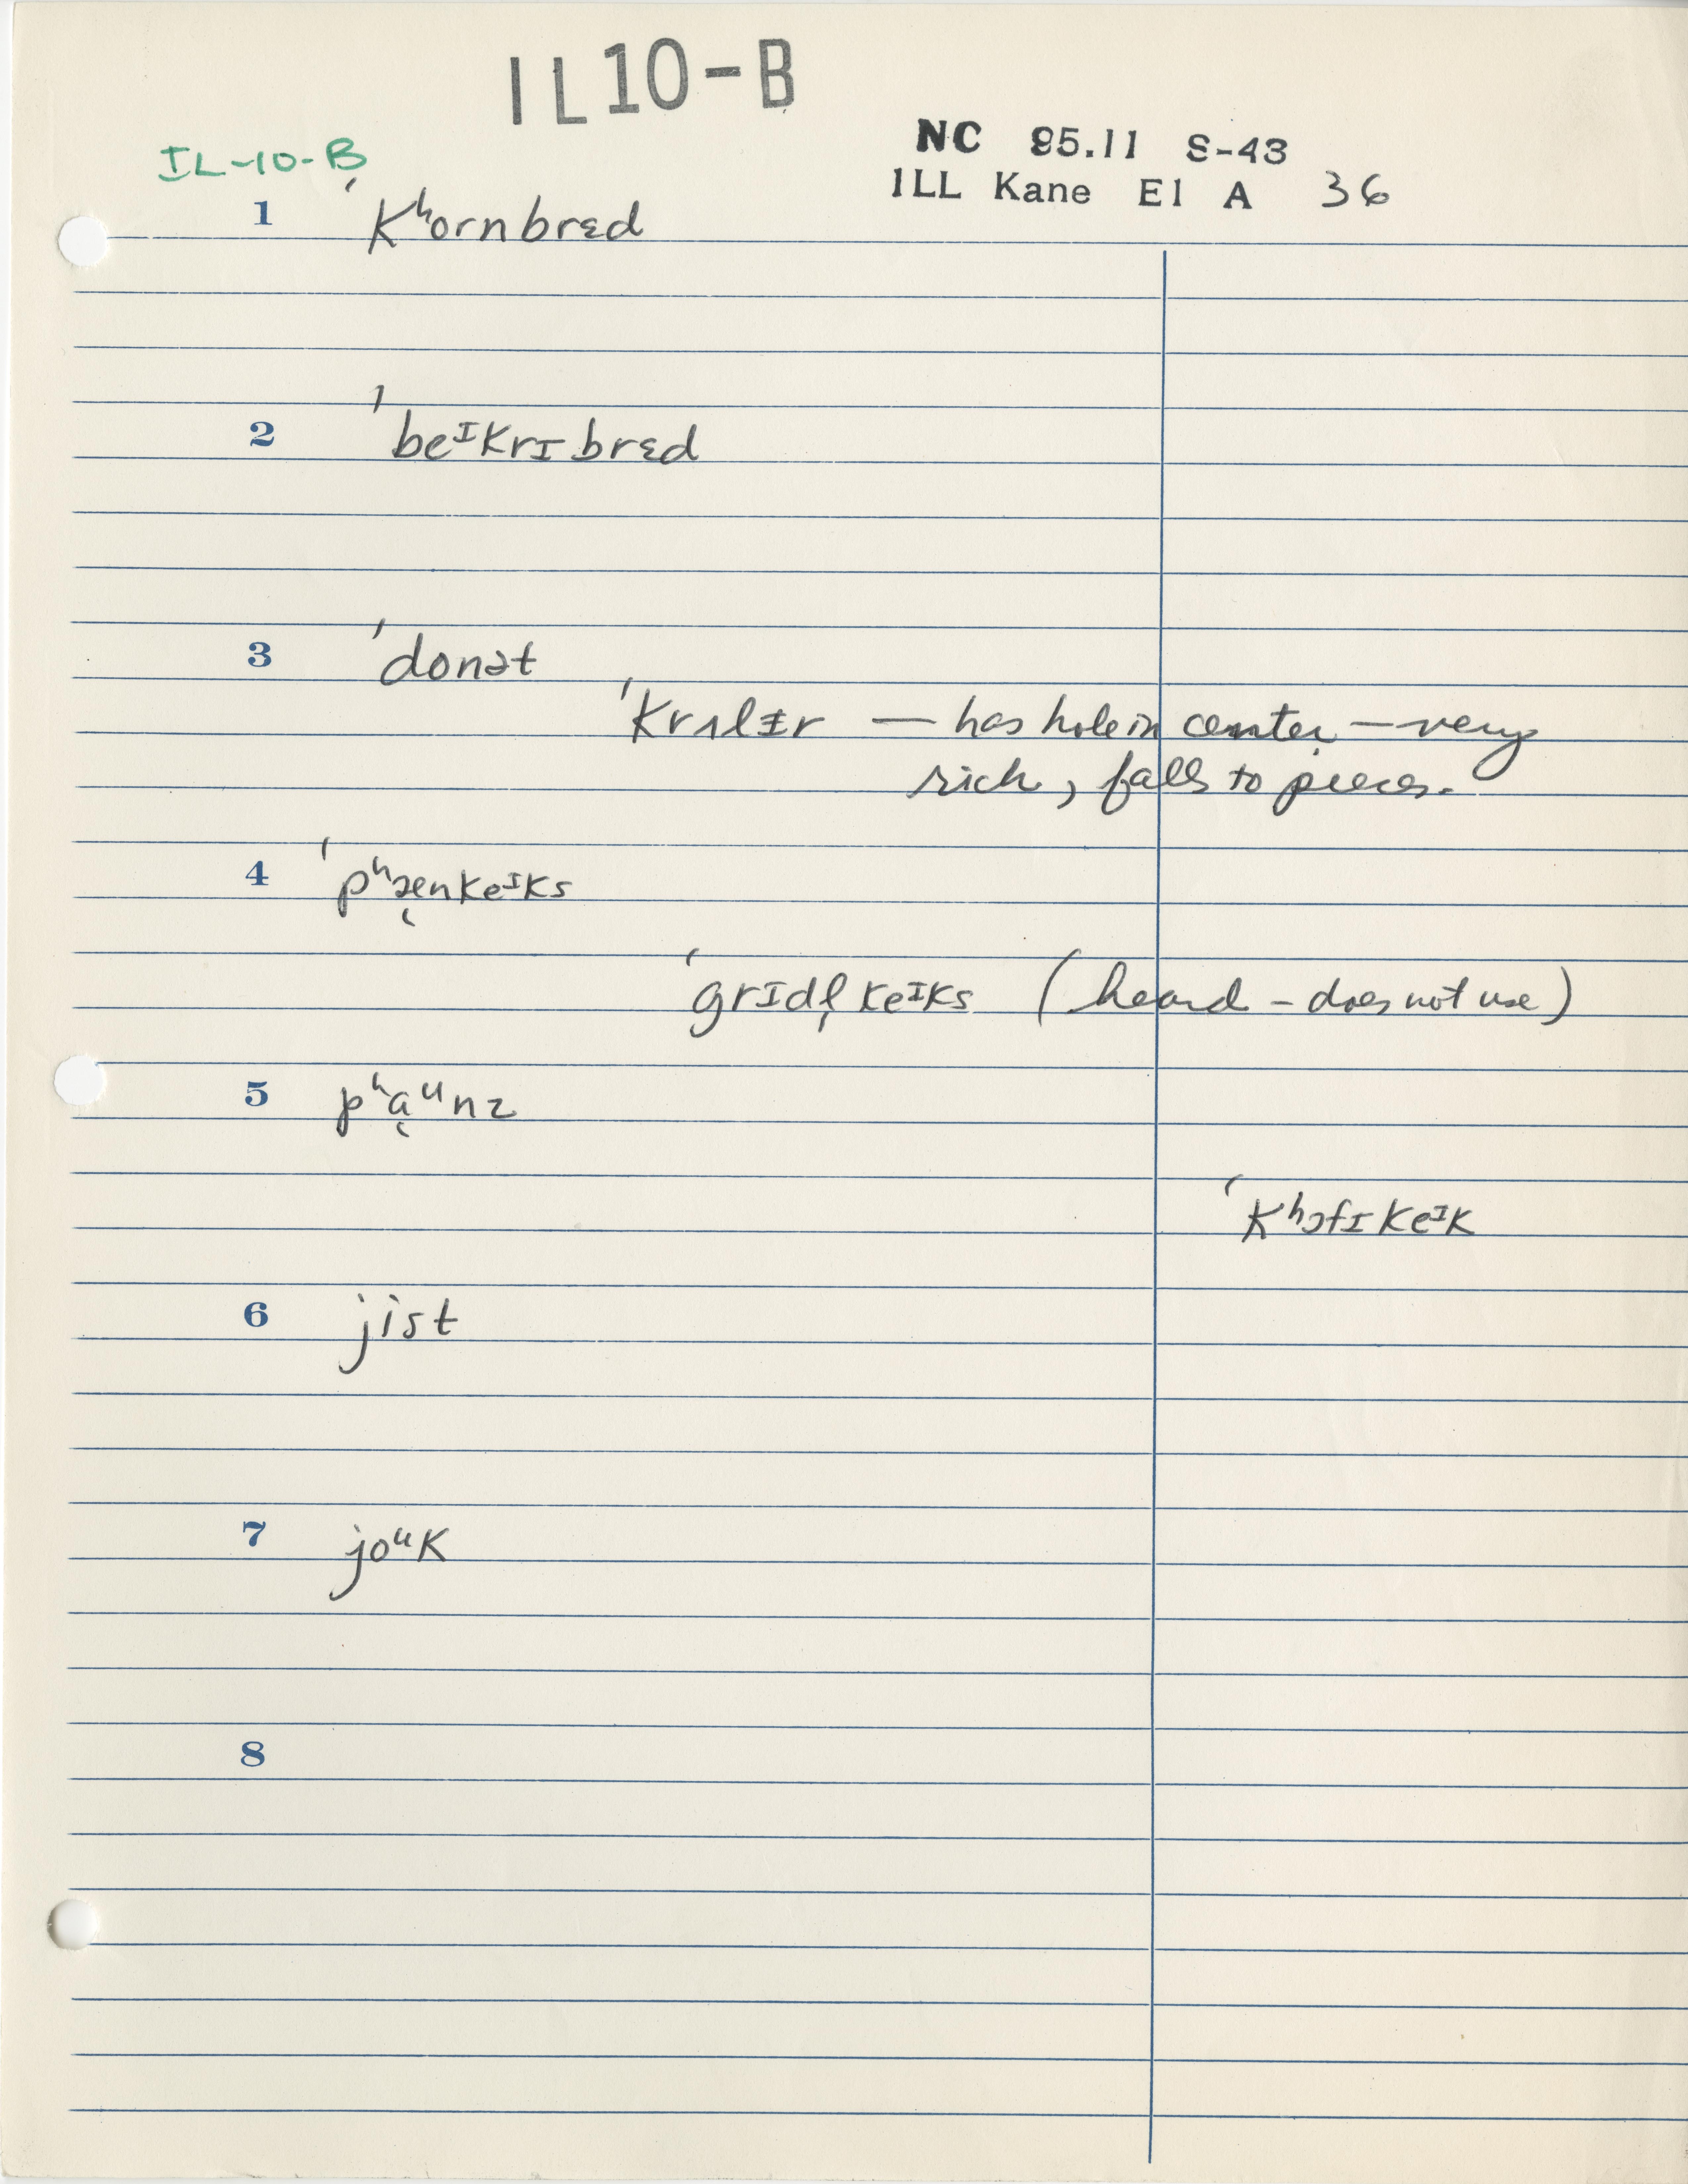 IL10-B
NC 95.11 S-43
IL-10-B
ILL Kane E1 A 36
1 ˈkʰornbrɛd
2 ˈbeᴵkrɪbrɛd
3 ˈdonət
ˈkrʌlɨr — has hole in center — very
rich, falls to pieces.
4 ˈpʰæ̨nkeᴵks
ˈgrɪdl̩keᴵks (heard - does not use)
5 pʰa̜ᵘnz
ˈkʰɔfɪkeᴵk
6 jist
7 joᵘk
8